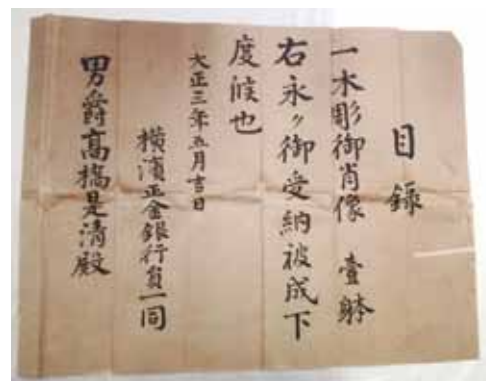 目録
一木彫御肖像 壹躰
右永々御受納被成下
度候也
大正三年五月吉日
横濱正金銀行員一同
男爵高橋是清殿